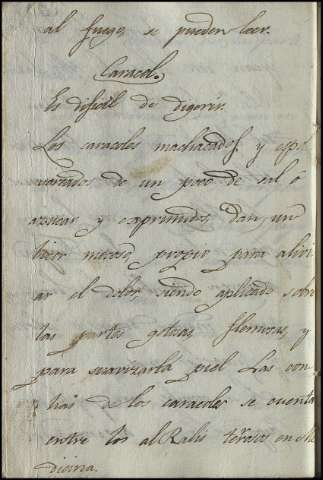 al fuego, se pueden leer.
Caracol.
Es dificil de digerir.
Los caracoles machacados y espol
voreados de un poco de sal ó
azucar y exprimidos, dan un
licor mucoso, propio para alivi
ar el dolor, siendo aplicado sobre
las partes gotosas, flemosas, y
para suavizar la piel. Las con
chas de los caracoles se cuentan
entre los alKalis terreos en Me
dicina.